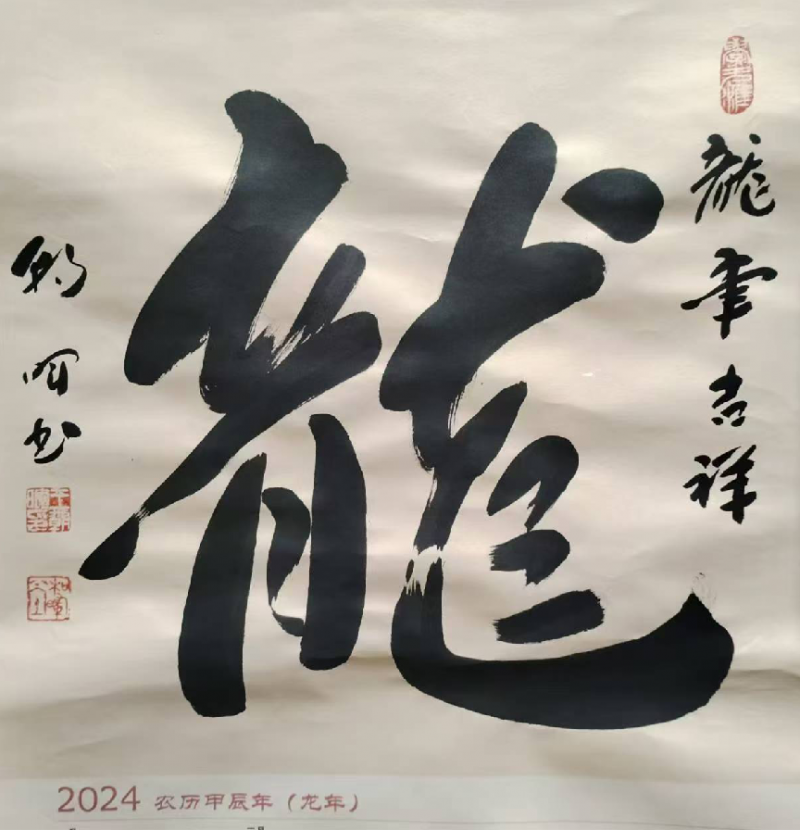 龍年吉祥
龍
书
2024 农历甲辰年（龙年）